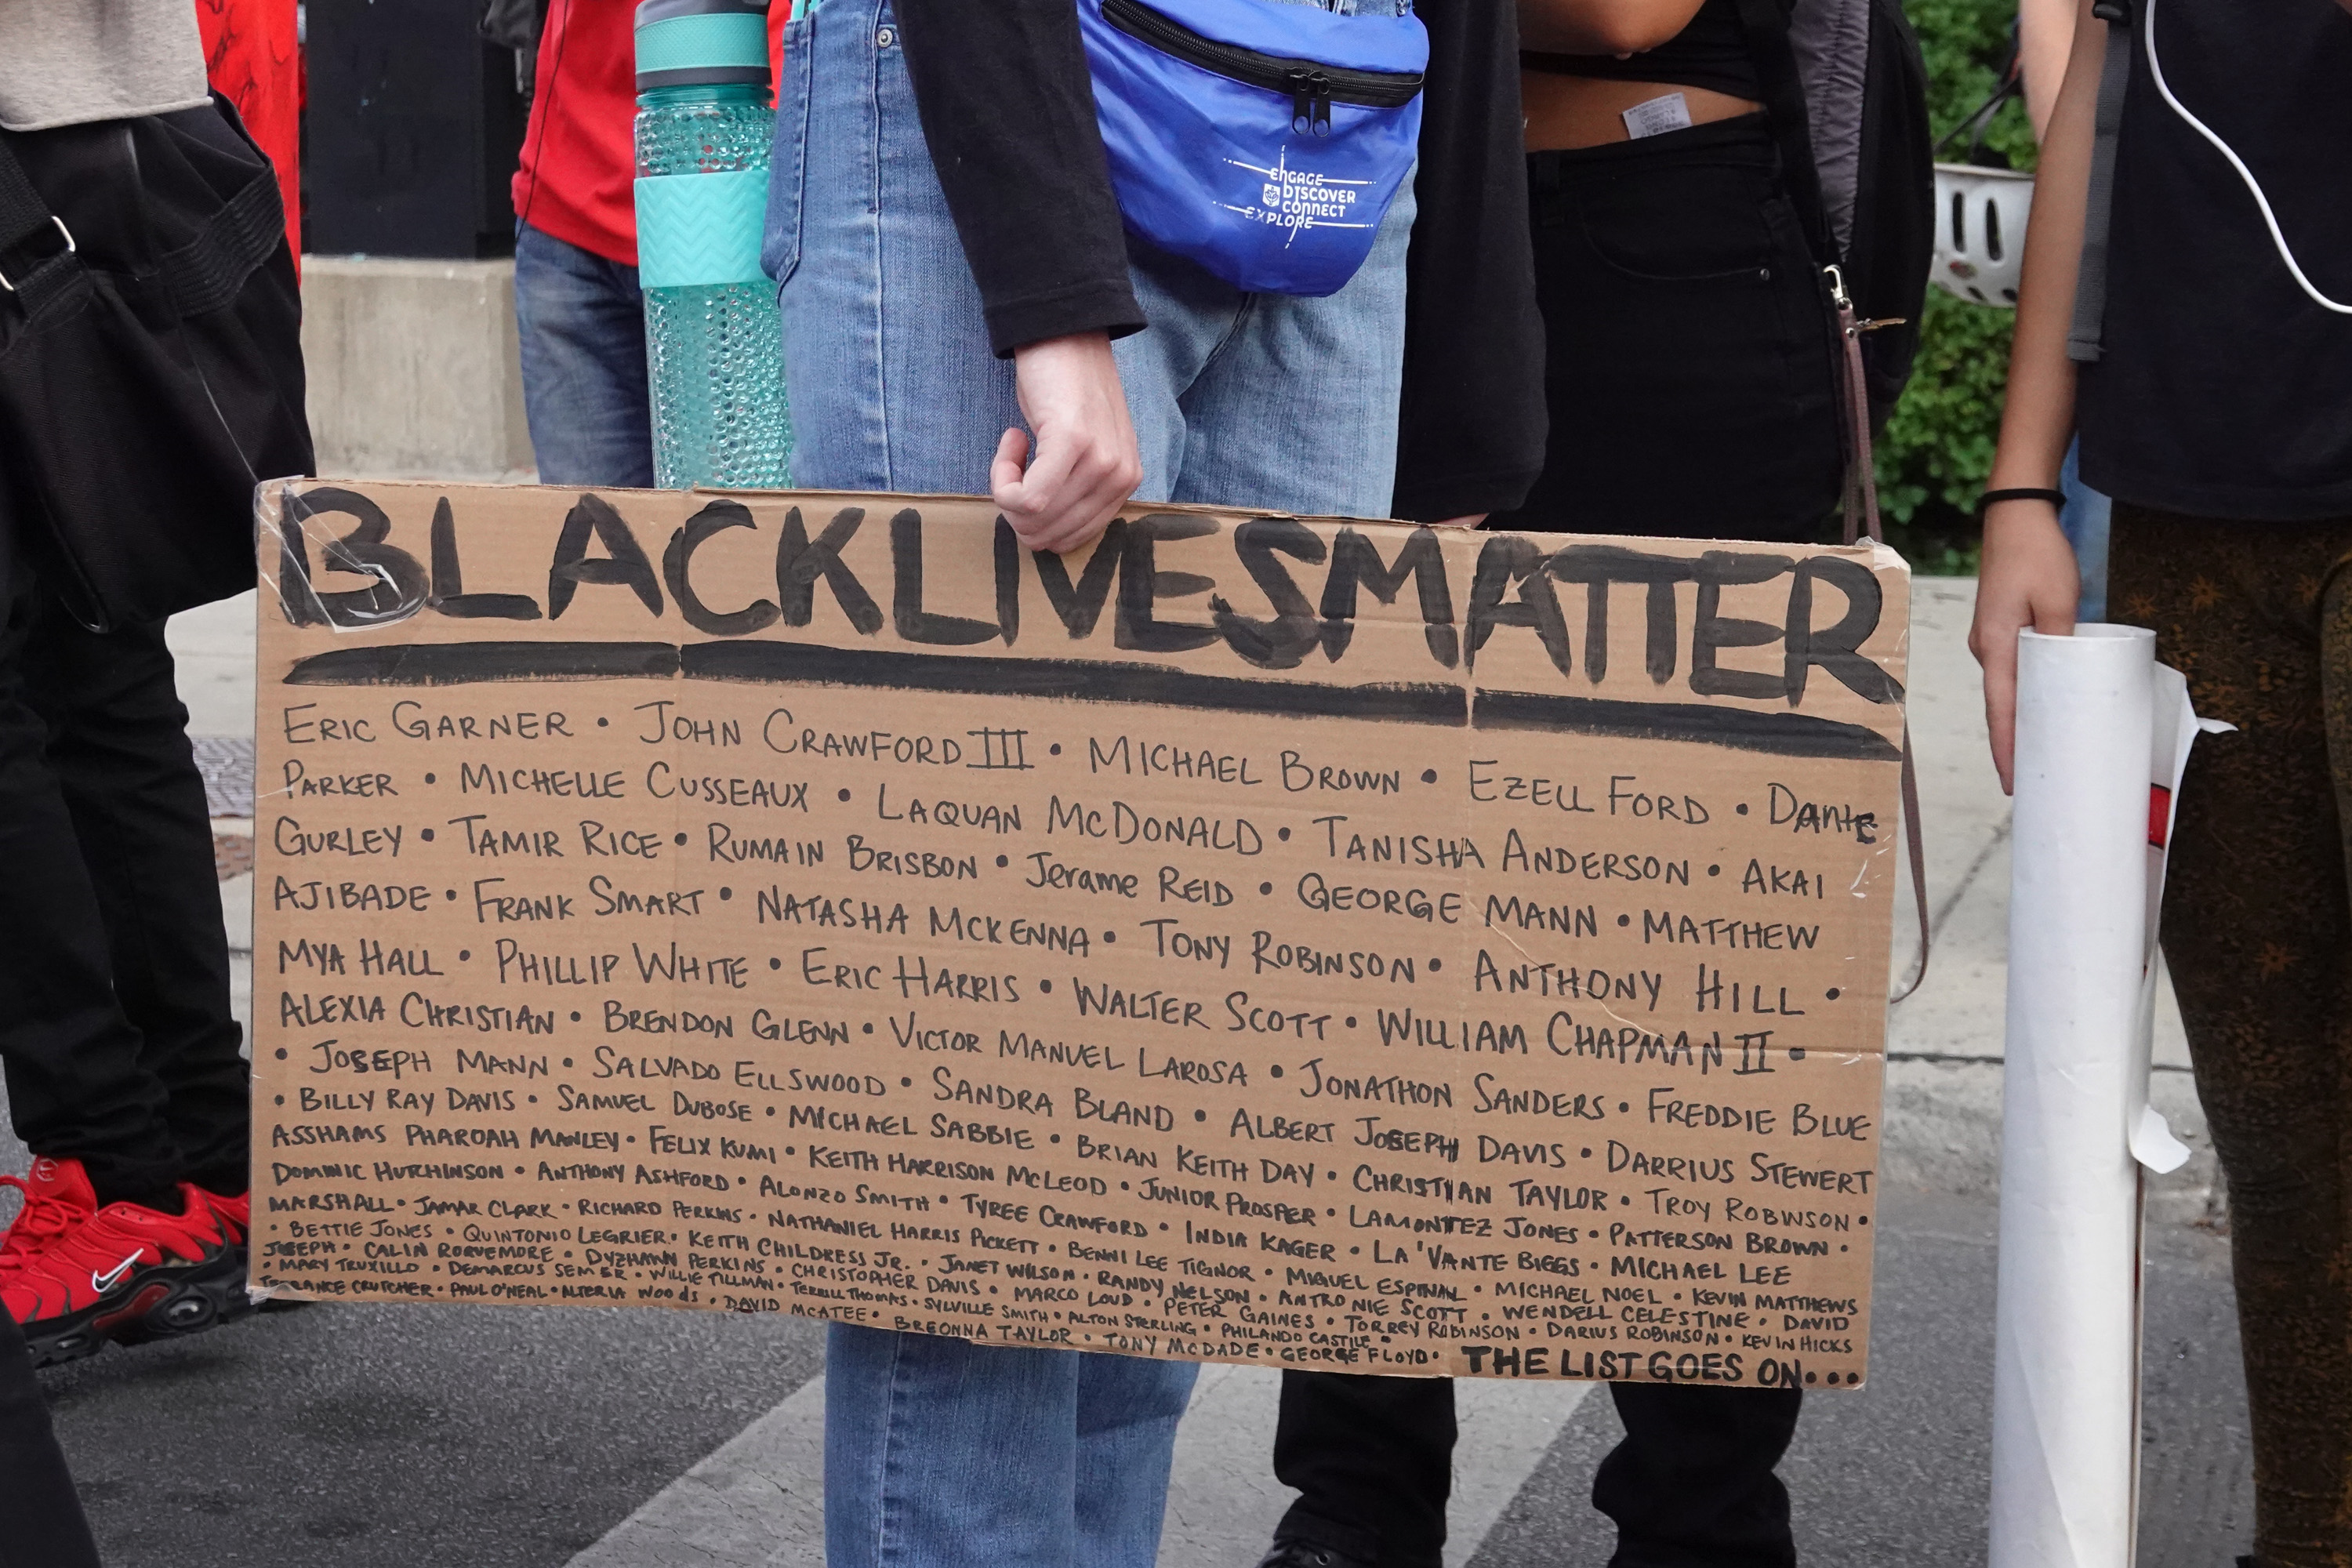 ENGAGE
DISCOVER
CONNECT
EXPLORE
BLACKLIVESMATTER
ERIC GARNER • JOHN CRAWFORD III • MICHAEL BROWN • EZELL FORD • DANTE
PARKER • MICHELLE CUSSEAUX • LAQUAN MCDONALD • TANISHA ANDERSON • AKAI
GURLEY • TAMIR RICE • RUMAIN BRISBON • Jerame REID • GEORGE MANN • MATTHEW
AJIBADE • FRANK SMART • NATASHA MCKENNA • TONY ROBINSON • ANTHONY HILL •
MYA HALL • PHILLIP WHITE • ERIC HARRIS • WALTER SCOTT • WILLIAM CHAPMAN II •
ALEXIA CHRISTIAN • BRENDON GLENN • VICTOR MANUEL LAROSA • JONATHON SANDERS • FREDDIE BLUE
• JOSEPH MANN • SALVADO ELLSWOOD • SANDRA BLAND • ALBERT JOSEPH DAVIS • DARRIUS STEWERT
• BILLY RAY DAVIS • SAMUEL DUBOSE • MICHAEL SABBIE • BRIAN KEITH DAY • CHRISTIAN TAYLOR • TROY ROBINSON •
ASSHAMS PHAROAH MANLEY • FELIX KUMI • KEITH HARRISON MCLEOD • JUNIOR PROSPER • LAMONTEZ JONES • PATTERSON BROWN •
DOMINIC HUTCHINSON • ANTHONY ASHFORD • ALONZO SMITH • TYREE CRAWFORD • INDIA KAGER • LA'VANTE BIGGS • MICHAEL LEE
MARSHALL • JAMAR CLARK • RICHARD PERKINS • NATHANIEL HARRIS PICKETT • BENNI LEE TIGNOR • MIGUEL ESPINAL • MICHAEL NOEL • KEVIN MATTHEWS
• BETTIE JONES • QUINTONIO LEGRIER • KEITH CHILDRESS JR. • JANET WILSON • RANDY NELSON • ANTRONIE SCOTT • WENDELL CELESTINE • DAVID
JOSEPH • CALIN ROQUEMORE • DYZHAWN PERKINS • CHRISTOPHER DAVIS • MARCO LOUD • PETER GAINES • TORREY ROBINSON • DARIUS ROBINSON • KEVIN HICKS
• MARY TRUXILLO • DEMARCUS SEMER • WILLIE TILLMAN • TERRILL THOMAS • SYLVILLE SMITH • ALTON STERLING • PHILANDO CASTILE •
TERRANCE CRUTCHER • PAUL O'NEAL • ALTERIA WOODS • DAVID MCATEE • BREONNA TAYLOR • TONY MCDADE • GEORGE FLOYD • THE LIST GOES ON...